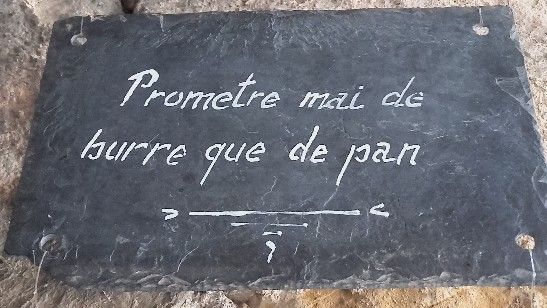 Prometre mai de
burre que de pan